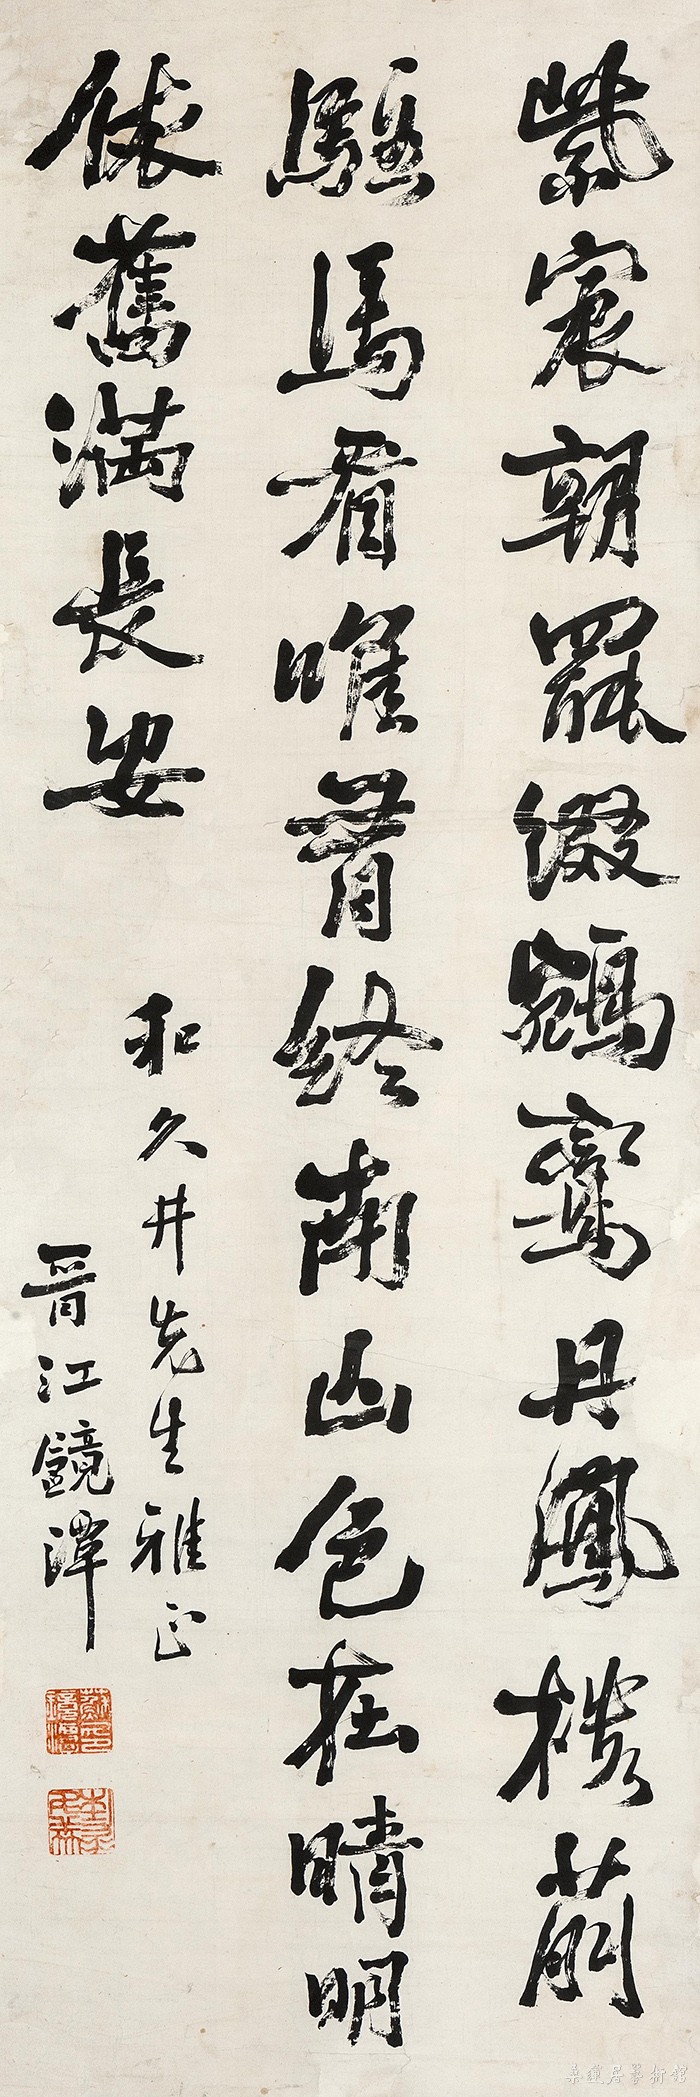 紫宸朝罷綴鵷鸞丹鳳樓前
駐馬看唯有終南山色在晴明
依舊滿長安
和久井先生雅正
晉江鏡潭
蘇印鏡潭